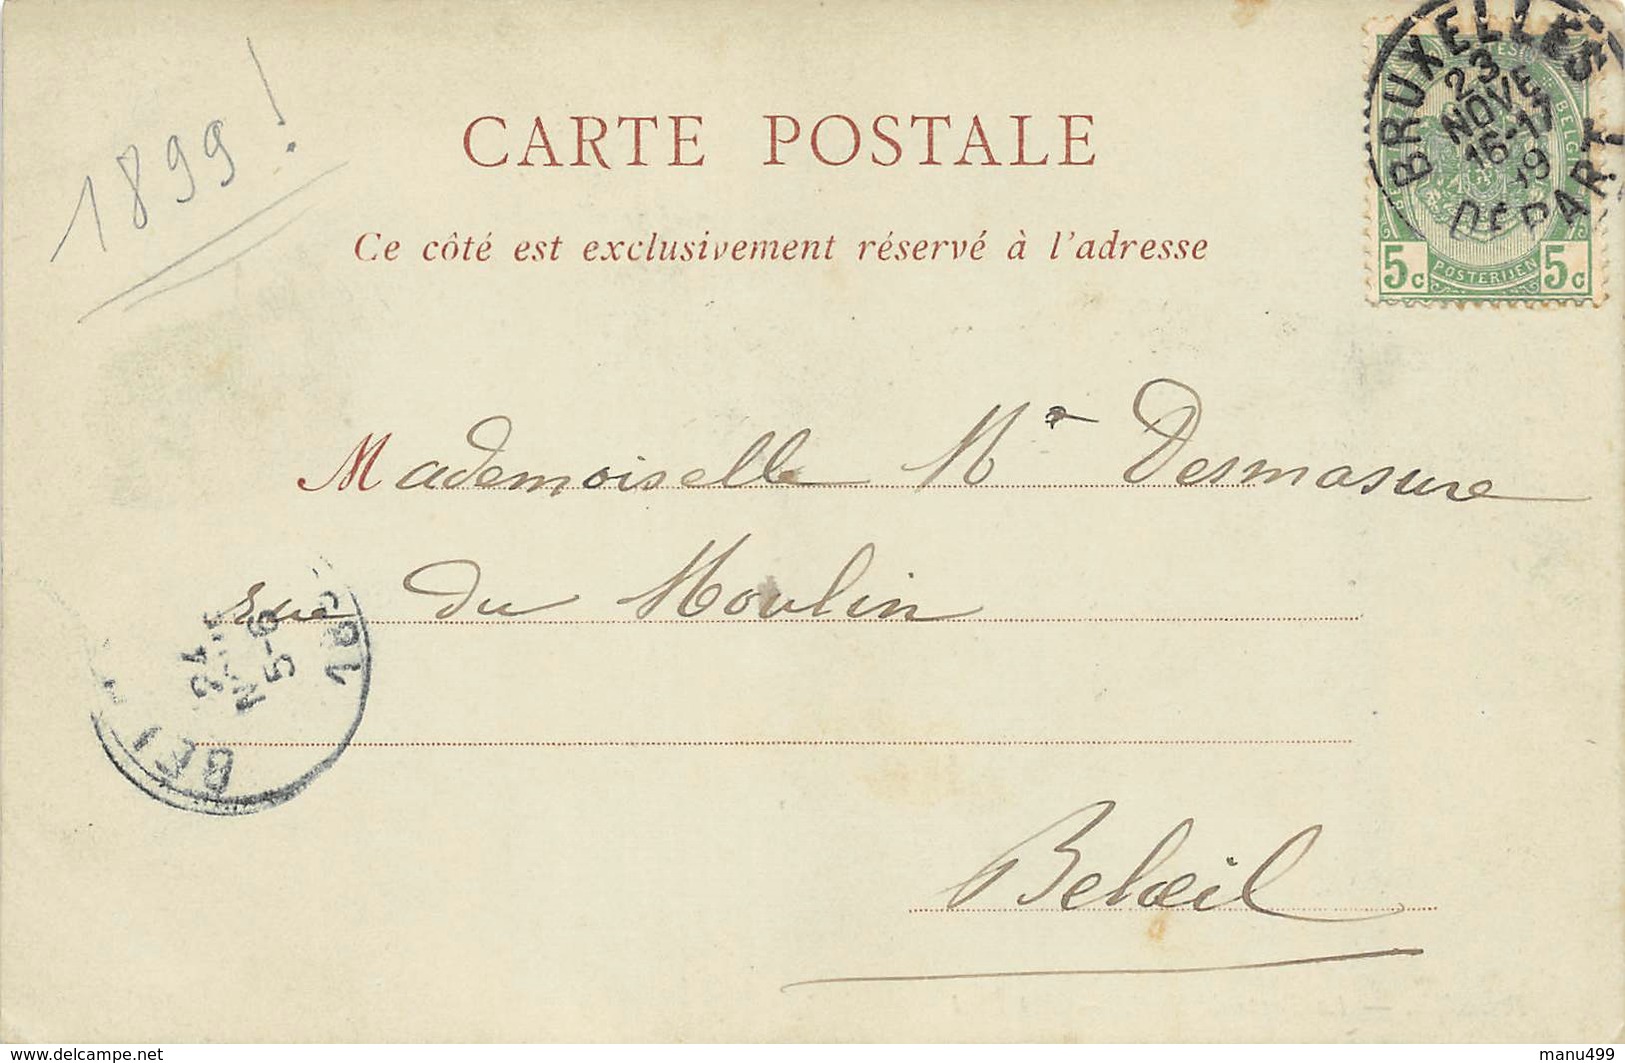 1899!
CARTE POSTALE
Ce côté est exclusivement réservé à l'adresse
BRUXELLES
23
NOVE
16-17
DÉPART
BELGI
5c POSTERIJEN 5c
Mademoiselle Desmasure
Rue du Moulin
24
5-6
BEL
Belœil
www.delcampe.net
manu499